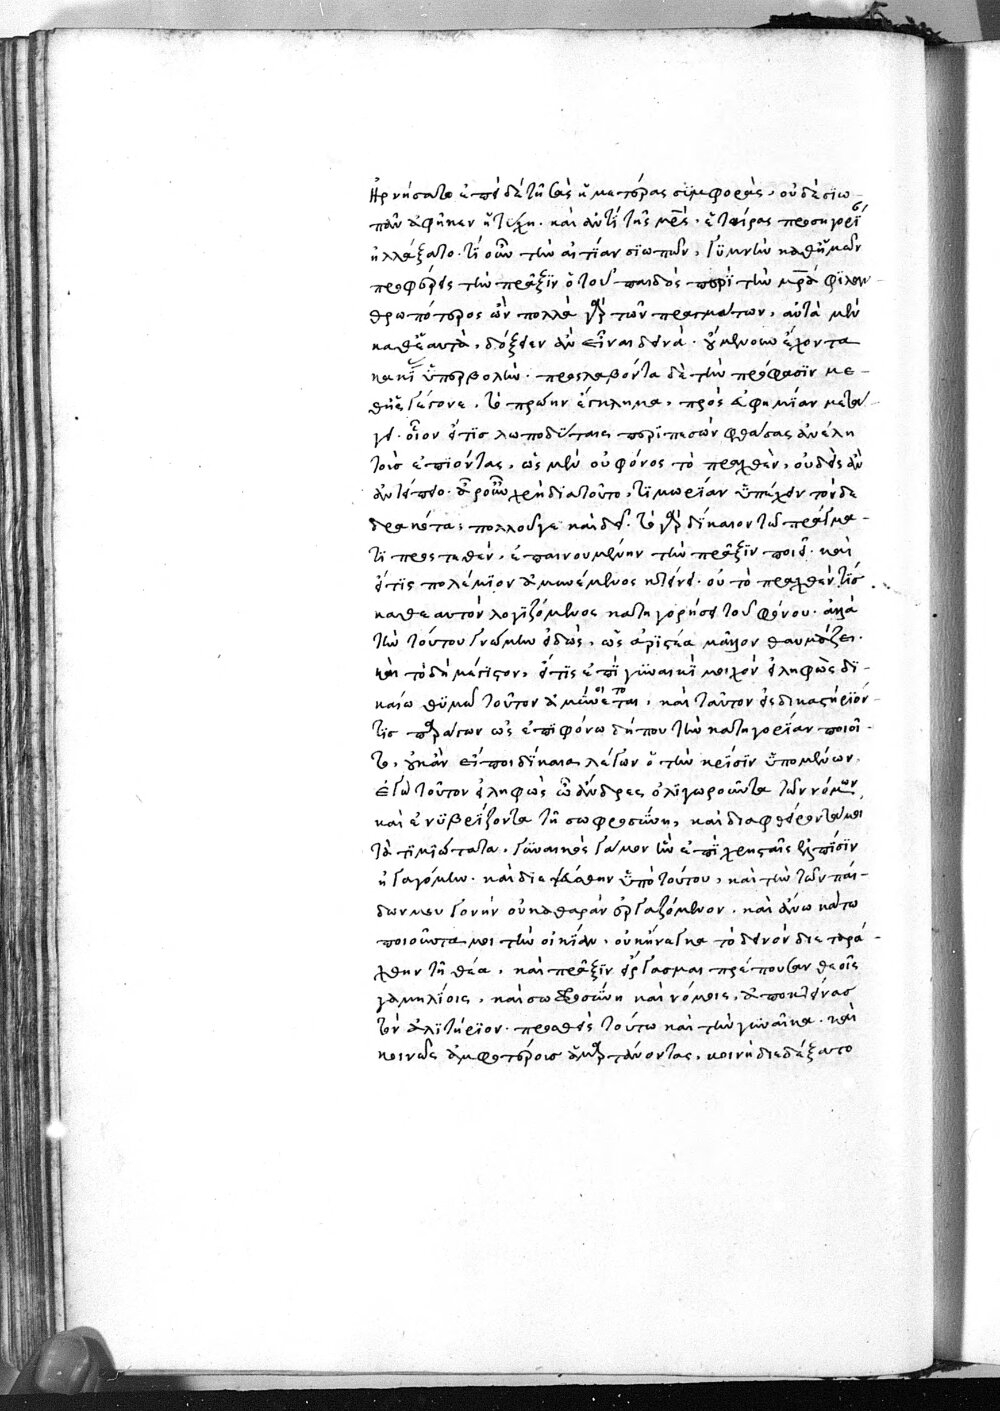 ἠρνήσατο ἐπέδειξε τὰς ἡμετέρας συμφοράς, οὐδὲ σιω-
πᾶν ἀφῆκεν ἡ τέχνη. καὶ ἀντὶ τῆς μητρὸς, ἑταίρας προσηγορί
ἠλλάξατο. τί οὖν τὴν αἰτίαν σιωπῶν, γυμνὴν καθ' ἡμῶν
προφέρεις τὴν πρᾶξιν ὁ τοῦ παιδὸς περὶ τὴν μητέρα φιλαν-
θρωπότερος ὤν πολλὰ γὰρ τῶν πραγμάτων, αὐτὰ μὲν
καθ' ἑαυτὰ, δόξειεν ἂν εἶναι δεινὰ. ἔχοντα
καὶ ὑπερβολὴν. προσλαβόντα δὲ τὴν πρόφασιν με-
γέγονε, τὸ πρώην ἔγκλημα, πρὸς εὐφημίαν μετα
γει. οἷον εἴ τις λωποδύταις περιπεσὼν φθάσας ἀνέλη
τοὺς ἐπιόντας, ὡς μὲν οὐ φόνος τὸ πραχθὲν, οὐδεὶς ἂν
ἀντείποι. ἆρ' οὖν χρὴ διατοῦτο, τιμωρίαν ὑπέχειν τὸν δε
δρακότα; πολλοῦ γε καὶ δεῖ. τὸ γὰρ δίκαιον τῷ πράγμα-
τι προστεθὲν, ἐπαινουμένην τὴν πρᾶξιν ποιεῖ. καὶ
εἴ τις πολέμιον ἀμυνόμενος κτείνει. οὐ τὸ πραχθὲν τίς
καθεαυτὸν λογιζόμενος κατηγορήσει τοῦ φόνου. ἀλλὰ
τὴν τούτου γνώμην εἰδὼς, ὡς ἀριστέα μᾶλλον θαυμάζει.
καὶ τὸ δὴ μέγιστον, εἴ τις ἐπὶ γυναικὶ μοιχὸν εἰληφὼς δι-
καίῳ θυμῷ τοῦτον ἀμύνοιτο, καὶ ταῦτον εἰς δικαστήριόν
τις παράγων ὡς ἐπὶ φόνω δήπου τὴν κατηγορίαν ποιοῖ-
το, οὐκ ἂν εἴποι δίκαια λέγων ὁ τὴν κρίσιν ὑπομένων,
ἐγὼ τοῦτον εἰληφὼς ὦ ἄνδρες ὀλιγωροῦντα τῶν νόμων,
καὶ ἐνυβρίζοντα τῆ σωφροσύνη, καὶ διαφθείροντά μοι
τὰ τιμιώτατα, γυναικὸς γάμον ἣν ἐπὶ χρησταῖς ἐλπίσιν
ἠγαγόμην. καὶ διεφθάρην ὑπὸ τούτου, καὶ τὴν τῶν παί-
δων μου γονὴν οὐ καθαρὰν ἐργαζόμενον. καὶ ἄνω κάτω
ποιοῦντα μοι τὴν οἰκίαν, οὐκ ἤνεγκα τὸ δεινὸν διεταρά-
χθην τῆ θέα, καὶ πρᾶξιν εἴργασμαι πρέπουσαν θεοῖς
γαμηλίοις, καὶ σωφροσύνη καὶ νόμοις, ἀποκτείνας
τὸν ἀλιτήριον. προσθεὶς τούτω καὶ τὴν γυναῖκα. καὶ
κοινῶς ἀμφοτέροις ἁμαρτάνοντας, κοινὴ διεδέξατο